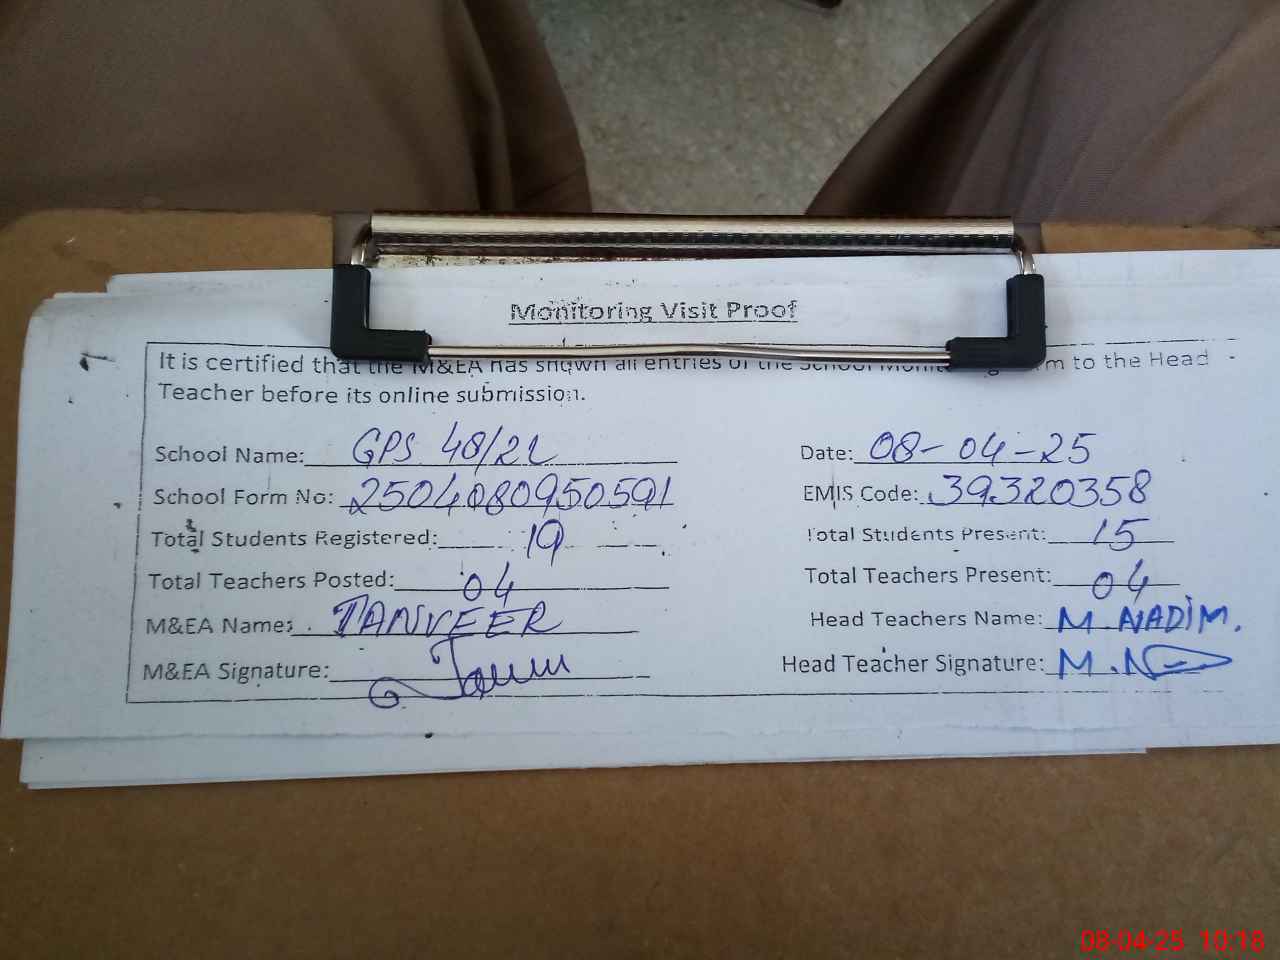 Monitoring Visit Proof
It is certified that the M&EA has shown all entries of the School Monitoring Form to the Head
Teacher before its online submission.
School Name: GPS 48/2L Date: 08-04-25
School Form No: 2504080950591 EMIS Code: 39320358
Total Students Registered: 19 Total Students Present: 15
Total Teachers Posted: 04 Total Teachers Present: 04
M&EA Name: TANVEER Head Teachers Name: M. NADIM.
M&EA Signature: Head Teacher Signature: M.N
08-04-25 10:18